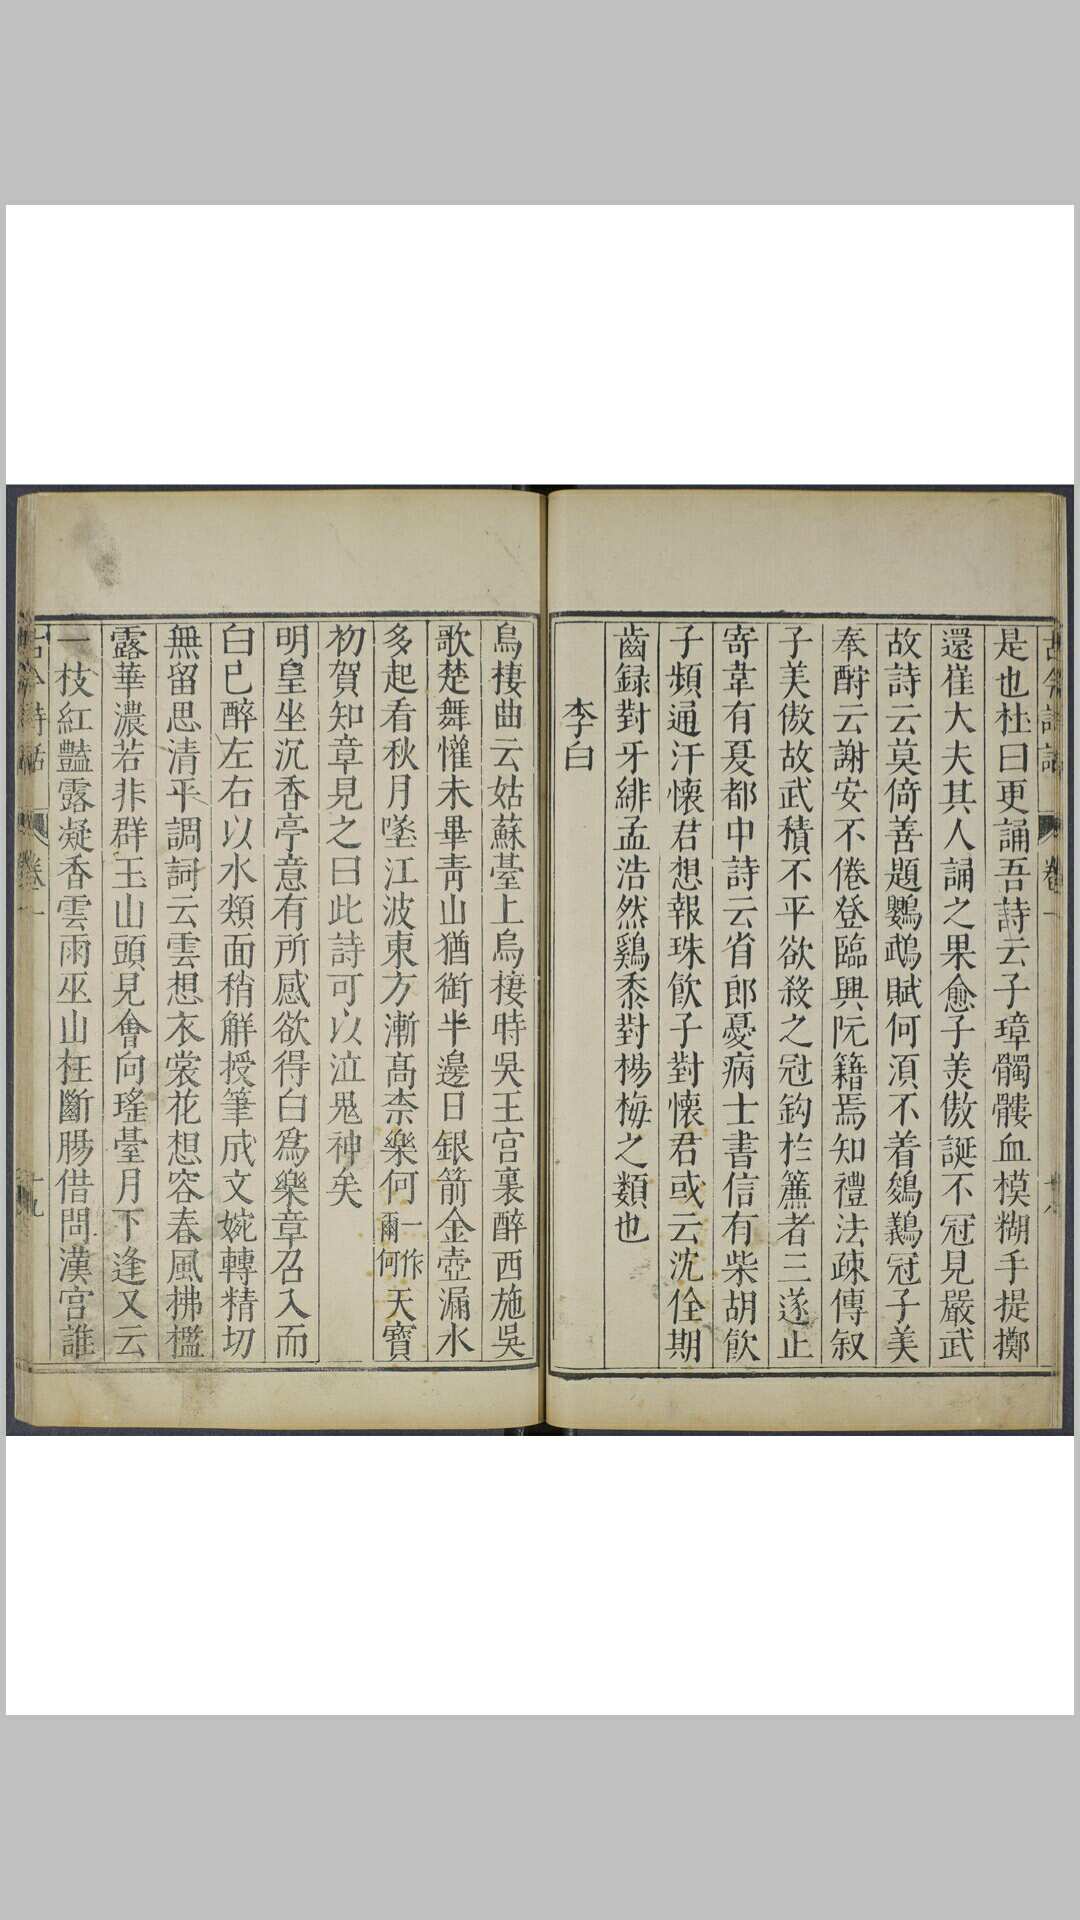 古今詩話 卷一 十八
是也杜曰更誦吾詩云子璋髑髏血模糊手提擲
還崔大夫其人誦之果愈子美傲誕不冠見嚴武
故詩云莫倚善題鸚鵡賦何須不着鵕鸃冠子美
奉酧云謝安不倦登臨興阮籍焉知禮法疎傳叙
子美傲故武積不平欲殺之冠鈎於簾者三遂止
寄韋有夏都中詩云省郎憂病士書信有柴胡飲
子頻通汗懷君想報珠飲子對懷君或云沈佺期
齒録對牙緋孟浩然鷄黍對楊梅之類也
李白
烏棲曲云姑蘇臺上烏棲時吳王宮裏醉西施吳
歌楚舞懽未畢青山猶銜半邊日銀箭金壺漏水
多起看秋月墜江波東方漸高柰樂何一作爾何天寶
初賀知章見之曰此詩可以泣鬼神矣
明皇坐沉香亭意有所感欲得白爲樂章召入而
白已醉左右以水頮面稍解授筆成文婉轉精切
無留思清平調詞云雲想衣裳花想容春風拂檻
露華濃若非群玉山頭見會向瑤臺月下逢又云
一枝紅豔露凝香雲雨巫山枉斷腸借問漢宮誰
古今詩話 卷一 十九